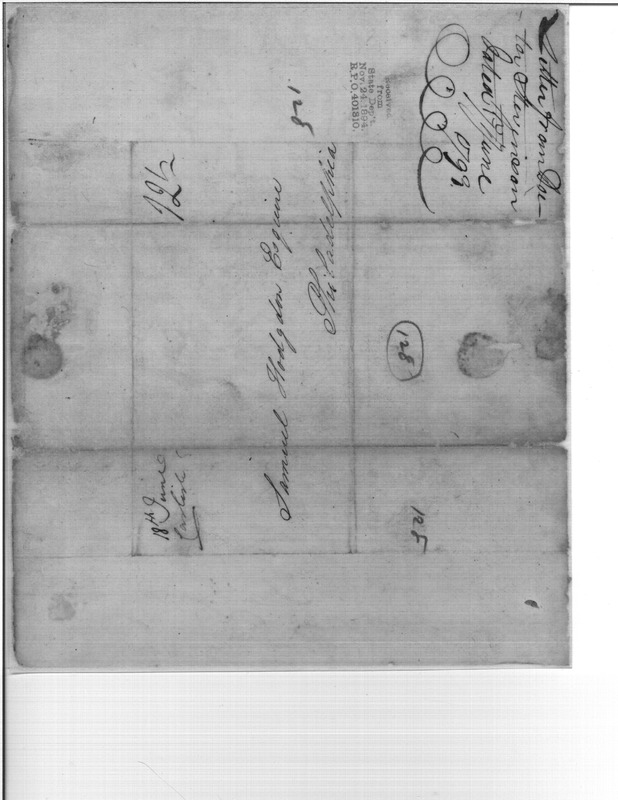 Letter from Doc-
-tor Stevenson
dated 17th June
1793
Received
from
State Dep't.
Nov. 24, 1894
R.P.O. 401810.
128
12 1/2
Samuel Hodgdon Esquire
Philadelphia
128
18th June
Carlisle
125